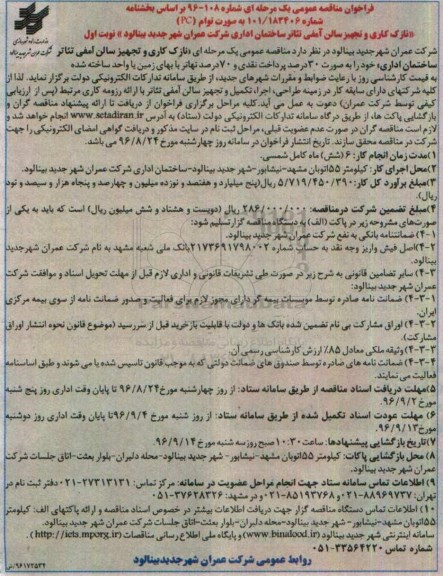 فراخوان مناقصه عمومی یک مرحله ای شماره ۱۰۸-۹۶ بر اساس بخشنامه
شماره ۱۰۱/۱۸۳۴۰۶ به صورت توام (PC)
«نازک کاری و تجهیز سالن آمفی تئاتر ساختمان اداری شرکت عمران شهر جدید بینالود» نوبت اول
شرکت عمران شهر جدید بینالود در نظر دارد مناقصه عمومی یک مرحله ای «نازک کاری و تجهیز سالن آمفی تئاتر
ساختمان اداری» خود را به صورت ۳۰ درصد پرداخت نقدی و ۷۰ درصد تهاتر با بهای زمین یا واحد ساخته شده
به قیمت کارشناسی روز با رعایت ضوابط و مقررات شهرهای جدید، از طریق سامانه تدارکات الکترونیکی دولت برگزار نماید. لذا از
کلیه شرکتهای دارای سابقه کار در زمینه طراحی، اجرا، تکمیل و تجهیز سالن آمفی تئاتر با ارائه رزومه کاری مرتبط (پس از ارزیابی
کیفی توسط شرکت عمران) دعوت به عمل می آید. کلیه مراحل برگزاری فراخوان از دریافت تا ارائه پیشنهاد مناقصه گران و
بازگشایی پاکت ها، از طریق درگاه سامانه تدارکات الکترونیکی دولت (ستاد) به آدرس www.setadiran.ir انجام خواهد شد و
لازم است مناقصه گران در صورت عدم عضویت قبلی، مراحل ثبت نام در سایت مذکور و دریافت گواهی امضای الکترونیکی را جهت
شرکت در مناقصه محقق سازند. تاریخ انتشار فراخوان در سامانه روز چهارشنبه مورخ ۹۶/۸/۲۴ می باشد.
۱) مدت زمان انجام کار: ۶ (شش) ماه کامل شمسی.
۲) محل اجرای کار: کیلومتر ۵۵ اتوبان مشهد-نیشابور-شهر جدید بینالود-ساختمان اداری شرکت عمران شهر جدید بینالود.
۳) مبلغ برآورد کل کار: ۵/۷۱۹/۴۵۰/۳۹۰ ریال (پنج میلیارد و هفتصد و نوزده میلیون و چهارصد و پنجاه هزار و سیصد و نود
ریال).
۴) مبلغ تضمین شرکت در مناقصه: ۲۸۶/۰۰۰/۰۰۰ ریال (دویست و هشتاد و شش میلیون ریال) است که باید به یکی از
صورت‌های مشروحه زیر در پاکت (الف) به دستگاه مناقصه گزار تسلیم شود:
۴-۱) ضمانتنامه بانکی به نفع شرکت عمران شهر جدید بینالود.
۴-۲) اصل فیش واریز وجه نقد به حساب شماره ۲۱۷۳۶۹۱۷۹۸۰۰۲ بانک ملی شعبه مشهد به نام شرکت عمران شهر جدید
بینالود.
۴-۳) سایر تضامین قانونی به شرح زیر در صورت طی تشریفات قانونی و اداری لازم قبل از مهلت تحویل اسناد و موافقت شرکت
عمران شهر جدید بینالود:
۴-۳-۱) ضمانت نامه صادره توسط موسسات بیمه گر دارای مجوز لازم برای فعالیت و صدور ضمانت نامه از سوی بیمه مرکزی
ایران.
۴-۳-۲) اوراق مشارکت بی نام تضمین شده بانک ها و دولت با قابلیت بازخرید قبل از سررسید (موضوع قانون نحوه انتشار اوراق
مشارکت).
۴-۳-۳) وثیقه ملکی معادل ۸۵٪ ارزش کارشناسی رسمی آن.
۴-۳-۴) ضمانت نامه های صادره توسط صندوق های ضمانت دولتی که به موجب قانون تاسیس شده یا می شوند و طبق اساسنامه
فعالیت می نمایند.
۵) مهلت دریافت اسناد مناقصه از طریق سامانه ستاد: از روز چهارشنبه مورخ ۹۶/۸/۲۴ تا پایان وقت اداری روز پنج شنبه
مورخ ۹۶/۹/۲.
۶) مهلت عودت اسناد تکمیل شده از طریق سامانه ستاد: از روز شنبه مورخ ۹۶/۹/۴ تا پایان وقت اداری روز دوشنبه
مورخ ۹۶/۹/۱۳.
۷) تاریخ بازگشایی پیشنهادها: ساعت ۱۰:۳۰ صبح روز سه شنبه مورخ ۹۶/۹/۱۴
۸) محل بازگشایی پاکات: کیلومتر ۵۵ اتوبان مشهد-نیشابور-شهر جدید بینالود-محله دلبران-بلوار بعثت-اتاق جلسات شرکت
عمران شهر جدید بینالود.
۹) اطلاعات تماس سامانه ستاد جهت انجام مراحل عضویت در سامانه: مرکز تماس: ۲۷۳۱۳۱۳۱-۰۲۱ دفتر ثبت نام در
تهران: ۸۸۹۶۹۷۳۷-۰۲۱ و ۸۵۱۹۳۷۶۸-۰۲۱ و در مشهد: ۳۷۶۲۸۳۲۶-۰۵۱
۱۰) اطلاعات تماس دستگاه مناقصه گزار جهت دریافت اطلاعات بیشتر در خصوص اسناد مناقصه و ارائه پاکتهای الف: کیلومتر
۵۵ اتوبان مشهد-نیشابور-شهر جدید بینالود-محله دلبران-بلوار بعثت-اتاق جلسات شرکت عمران شهر جدید بینالود.
سامانه اینترنتی شهر جدید بینالود (www.binalood.ir) و پایگاه ملی اطلاع رسانی مناقصات (http://iets.mporg.ir).
شماره تماس ۳۳۵۶۴۲۲۰-۰۵۱
روابط عمومی شرکت عمران شهر جدید بینالود
۹۶۱۷۲۵۳۴/ش